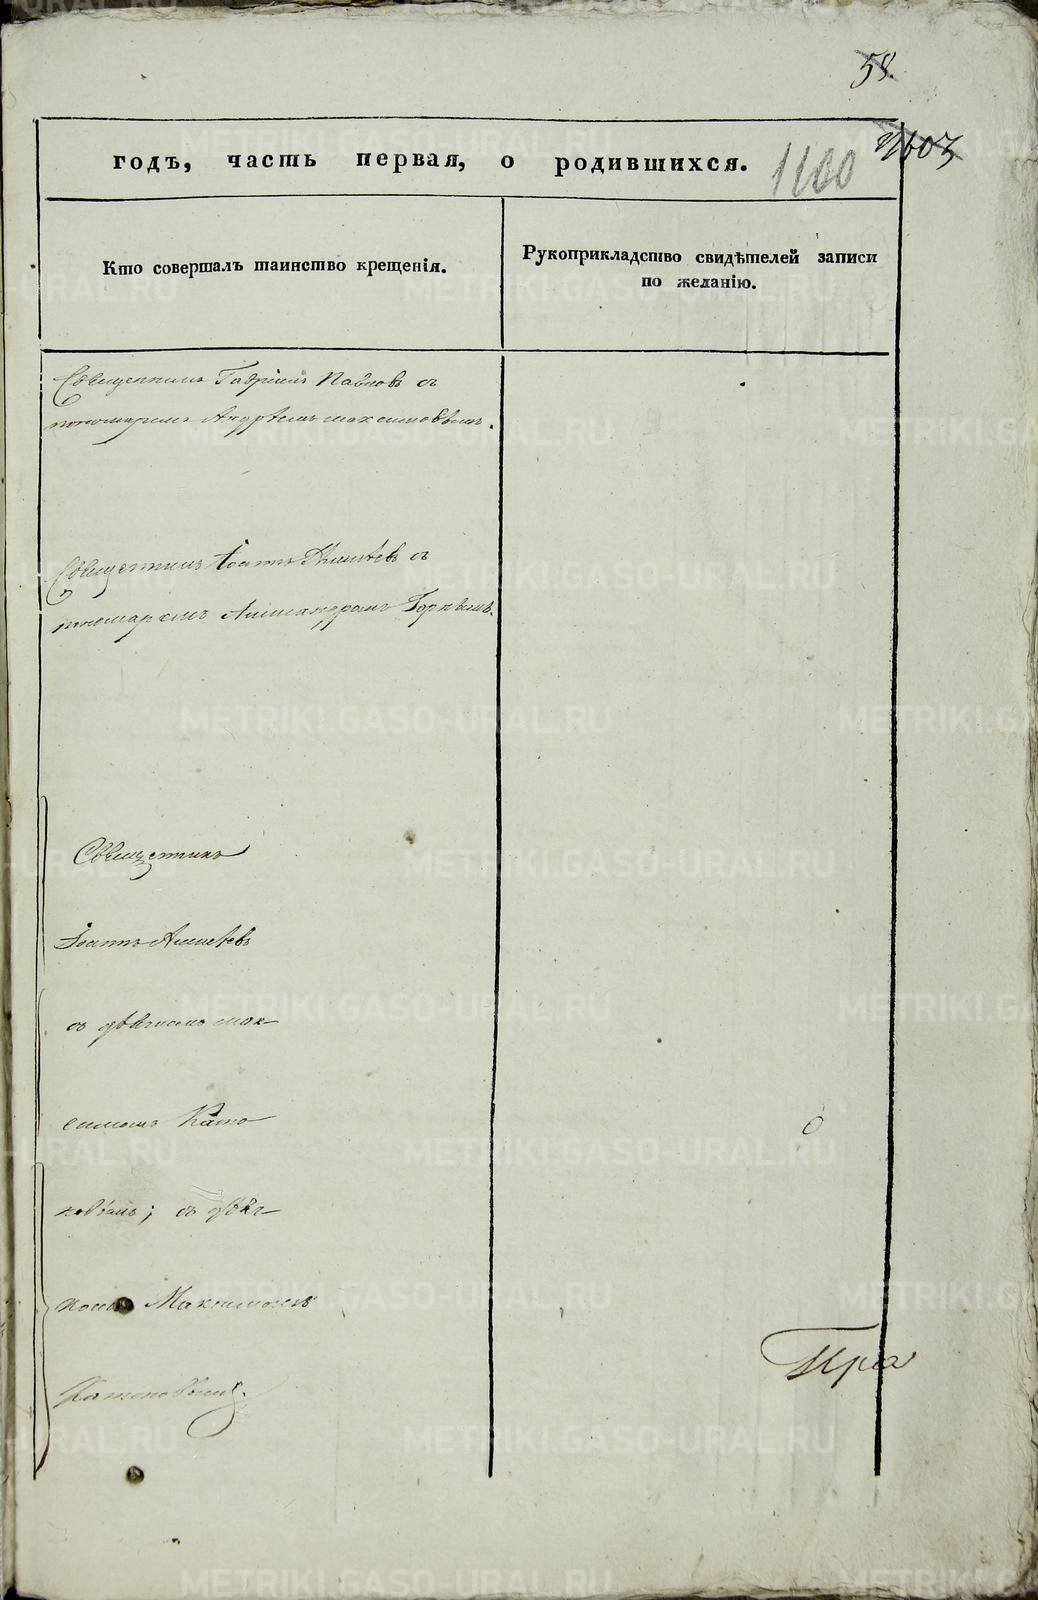 58.
1603
годъ, часть первая, о родившихся.
1100
Кто совершалъ таинство крещенія.
Рукоприкладство свидѣтелей записи
по желанію.
Священникъ Гавріилъ Павловъ съ
пономаремъ Андреемъ Максимовымъ.
Священникъ Іоаннъ съ
пономаремъ Александромъ
Священникъ
Іоаннъ
съ дьячкомъ Мак-
симомъ
съ дьяч-
комъ Максимомъ
METRIKI.GASO-URAL.RU